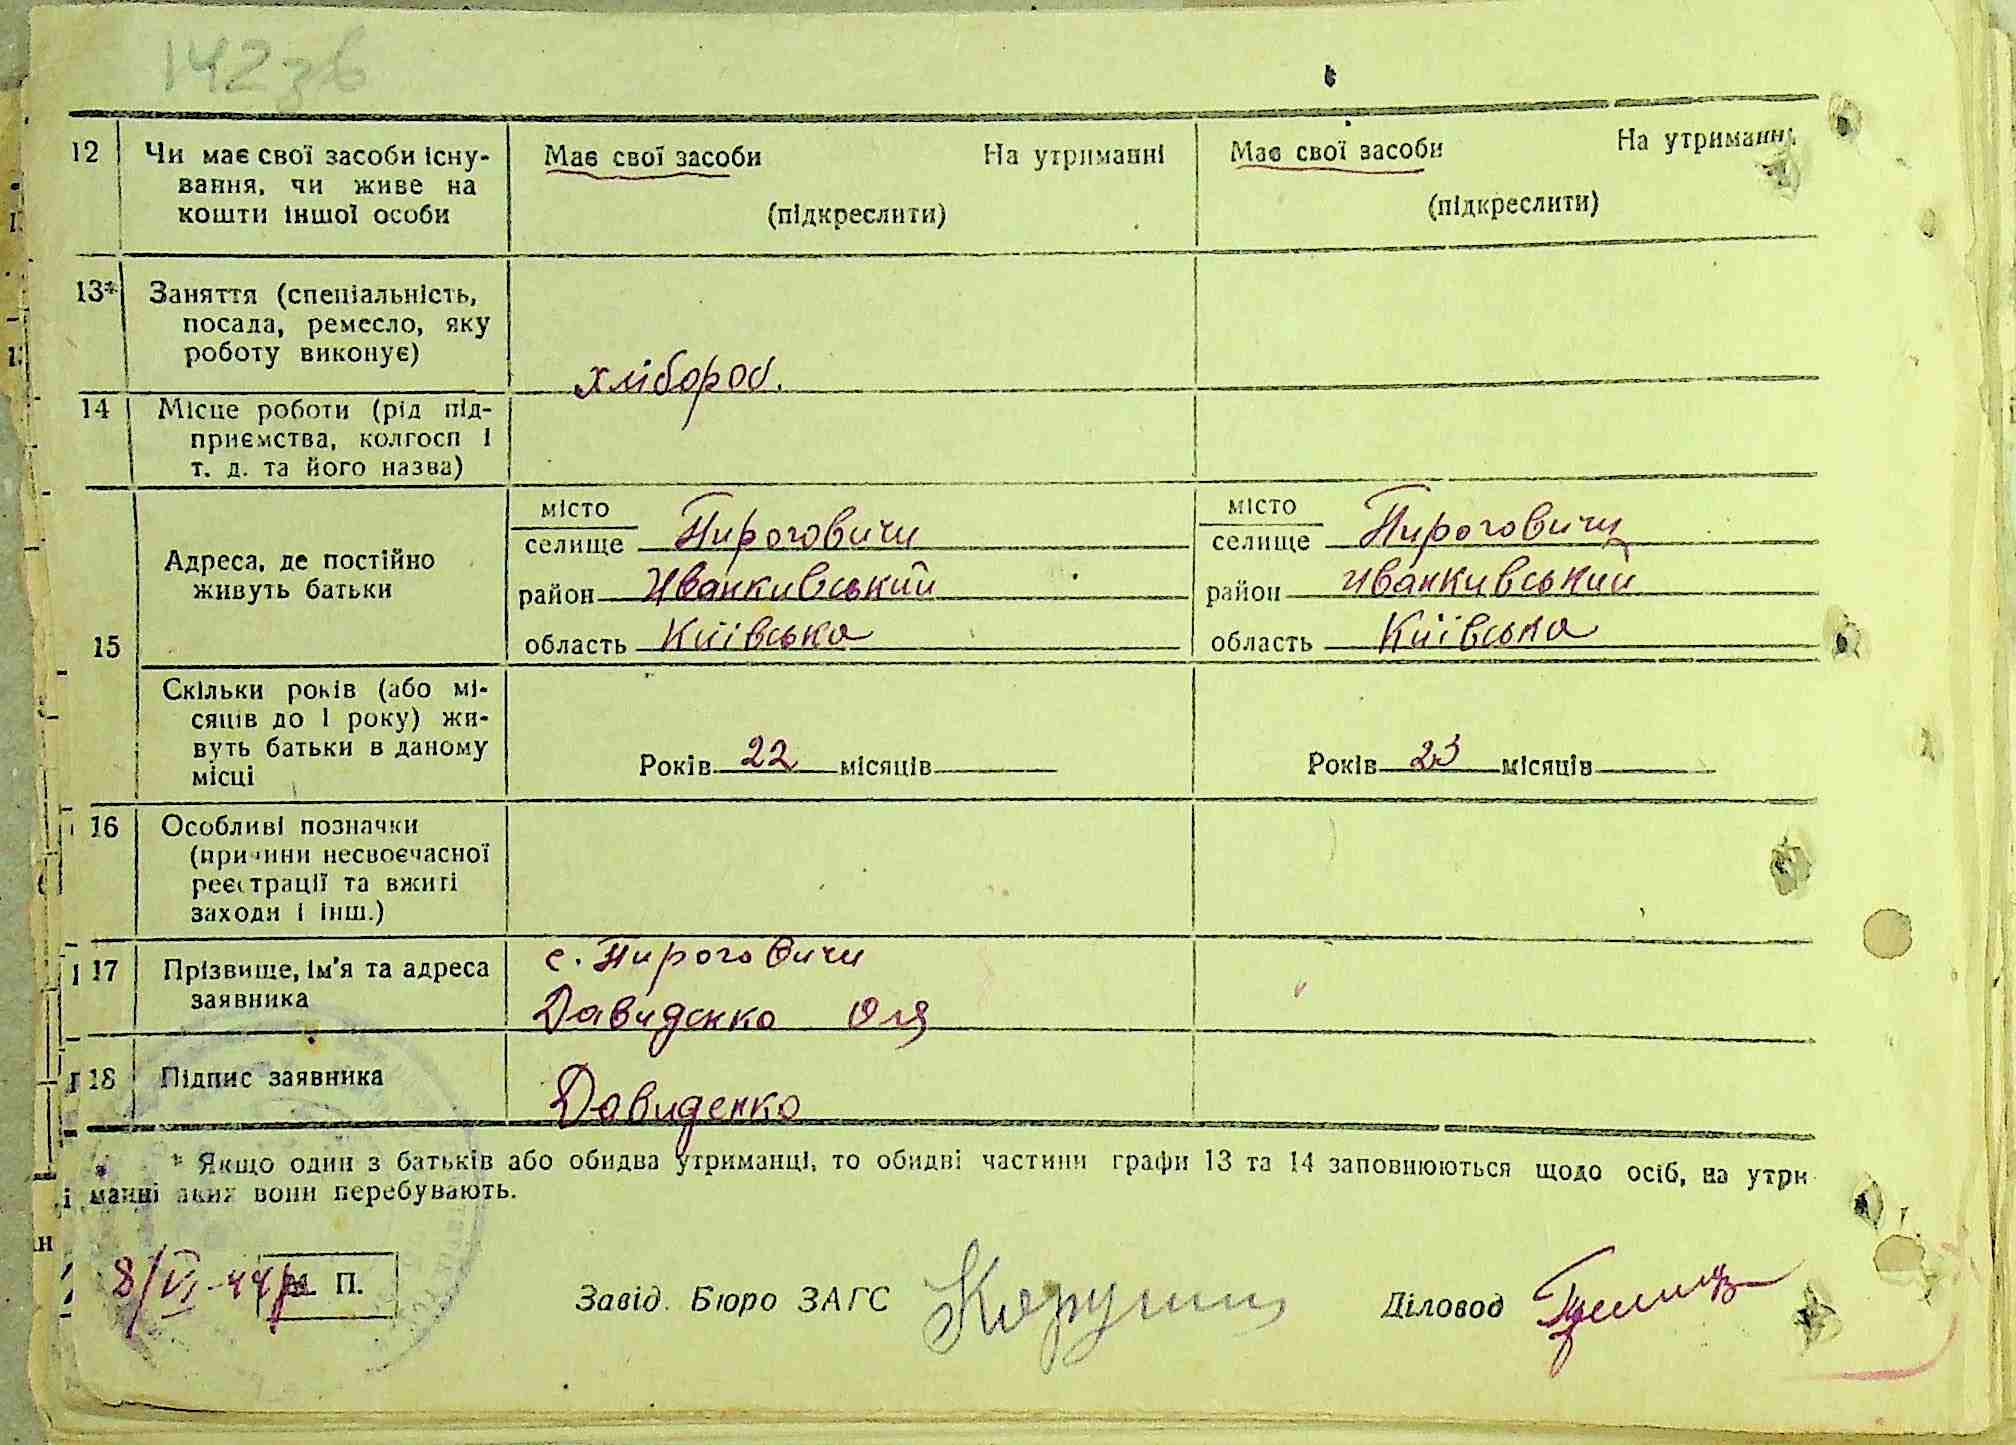 142 зв
12 Чи має свої засоби існу- Має свої засоби На утриманні Має свої засоби На утриманні
вання, чи живе на
кошти іншої особи (підкреслити) (підкреслити)
13* Заняття (спеціальність,
посада, ремесло, яку
роботу виконує) хлібороб.
14 Місце роботи (рід під-
приємства, колгосп і
т. д. та його назва)
15 Адреса, де постійно
живуть батьки
місто
селище Пироговичи
район Иванкивський
область Київська
місто
селище Пироговичи
район Иванкивський
область Київська
Скільки років (або мі-
сяців до 1 року) жи-
вуть батьки в даному
місці
Років 22 місяців Років 23 місяців
16 Особливі позначки
(причини несвоєчасної
реєстрації та вжиті
заходи і інш.)
17 Прізвище, ім'я та адреса
заявника
с. Пироговичи
Давиденко Оля
18 Підпис заявника Давиденко
* Якщо один з батьків або обидва утриманці, то обидві частини графи 13 та 14 заповнюються щодо осіб, на утри
манні яких вони перебувають.
8/VI-44р М. П. Завід. Бюро ЗАГС Діловод